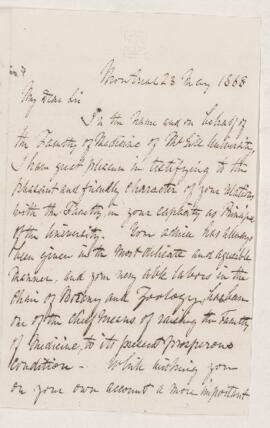 Montreal 23 May 1868
My Dear Sir
In the Name and on behalf of
the Faculty of Medicine of McGill University,
I have great pleasure in testifying to the
pleasant and friendly character of your relations
with the Faculty, in your capacity as Principal
of the University. Your advice has always
been given in the most delicate and agreeable
manner, and your very able labors in the
Chair of Botany and Zoology, has been
one of the chief means of raising the Faculty
of Medicine, to its present prosperous
condition – While wishing you
on your own account a more important